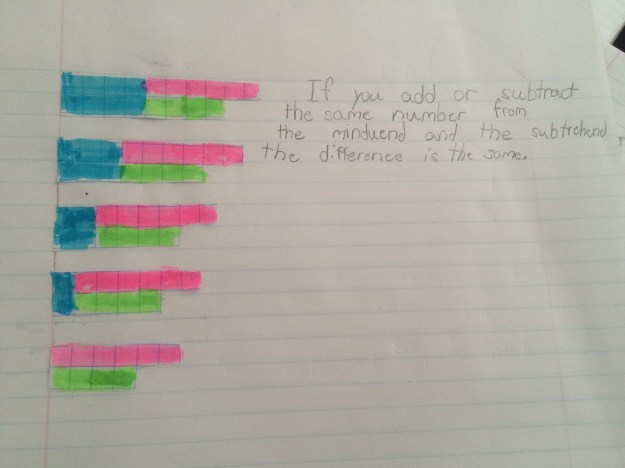 If you add or subtract
the same number from
the minduend and the subtrehend
the difference is the same.